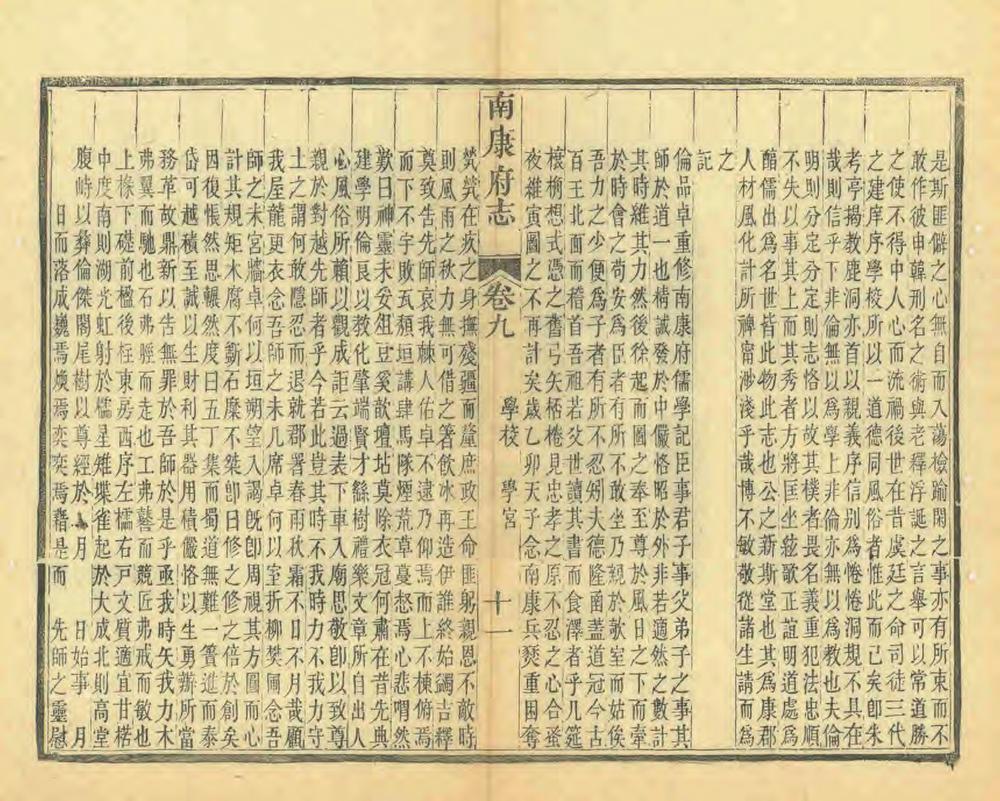 是斯匪僻之心無自而入蕩檢踰閑之事亦有所束而不
敢作彼申韓刑名之術與老釋浮誕之言舉可以常道勝
之使不得中人心而流禍後世在昔虞廷之命司徒三代
之建庠序學校所以一道德同風俗者惟此而已矣卽朱
考亭揭教鹿洞亦首以親義序信别為惓惓洞規不具在
哉則信乎下非倫無以為學上非倫亦無以為教也夫倫
明則分定分定則志恪以故其樸者畏名義重犯法忠順
不失以事其上而其秀者方將匡坐絃歌正誼明道處為
醕儒出為名世皆此物此志也公之新斯堂也其為康郡
人材風化計所裨甯渉淺乎哉博不敏敬從諸生請而為
之
記
倫品卓重修南康府儒學記臣事君子事父弟子之事其
師於道一也精誠發於中儼恪昭於外非若適然之數計
其時維其力然後徐起而圖之奉至尊於風日之下而牽
於時會之苟安為臣者有所不敢坐乃親於欹室而姑俟
吾力之少便為子者有所不忍矧夫德隆函蓋道冠今古
百王北面而稽首吾祖若父世讀其書而食澤者乎几筵
榱桷想式憑之舊弓矢桮棬見忠孝之原不忍之心合蚤
夜維寅圖之不再計矣歲乙卯天子念南康兵燹重困奪
南康府志
卷九
學校 學宮
十一
煢煢在疚之身撫殘疆而釐庶政王命匪躬親恩不敵時
則風雨之秋力無可借之箸飲冰再造伊誰終始蠲吉釋
奠致告先師哀我棘人佑卓不遠乃仰焉而上不棟俯焉
而下不宇敗瓦頹垣講肆馬隊煙荒草蔓惄焉心悲喟然
歎曰神靈未妥俎豆奚歆壇坫莫除衣冠何肅在昔先典
建學明倫良以教化肇端賢才繇樹禮樂文章所自出人
心風俗所賴以觀成詎云過表下車入廟思敬卽以致尊
親於對越先師者乎今若此豈其時不我時力不我力守
土之謂何敢隱忍而退就郡署春雨秋霜不日不月哉顧
我屋龐更衣念吾師之未几席卓何以室折其樊圃念吾
師之未宮牆卓何以垣朔望入謁旣卽周視其方圓而心
計其規矩木腐不斵石糜不桀卽日修之修之倍於創矣
因復悵然思輾然度曰五丁集而蜀道無難一簣進而泰
岱可越積至誠以生財利其器用積儼恪以生勇辦所當
務革故鼎新以吿無罪於吾師於是乎亟我時矢我力木
弗翼而馳也石弗脛而走也工弗藝而競匠弗戒而敏也
上椽下礎前楹後桎東房西序左檽右戸文質適宜甘楛
中度南則湖光虹射於檽星雉堞雀起於大成北則高堂
腹峙以彝倫傑閣尾樹以尊經於 月 日始事 月
日而落成巍焉煥焉奕奕焉藉是而 先師之靈慰